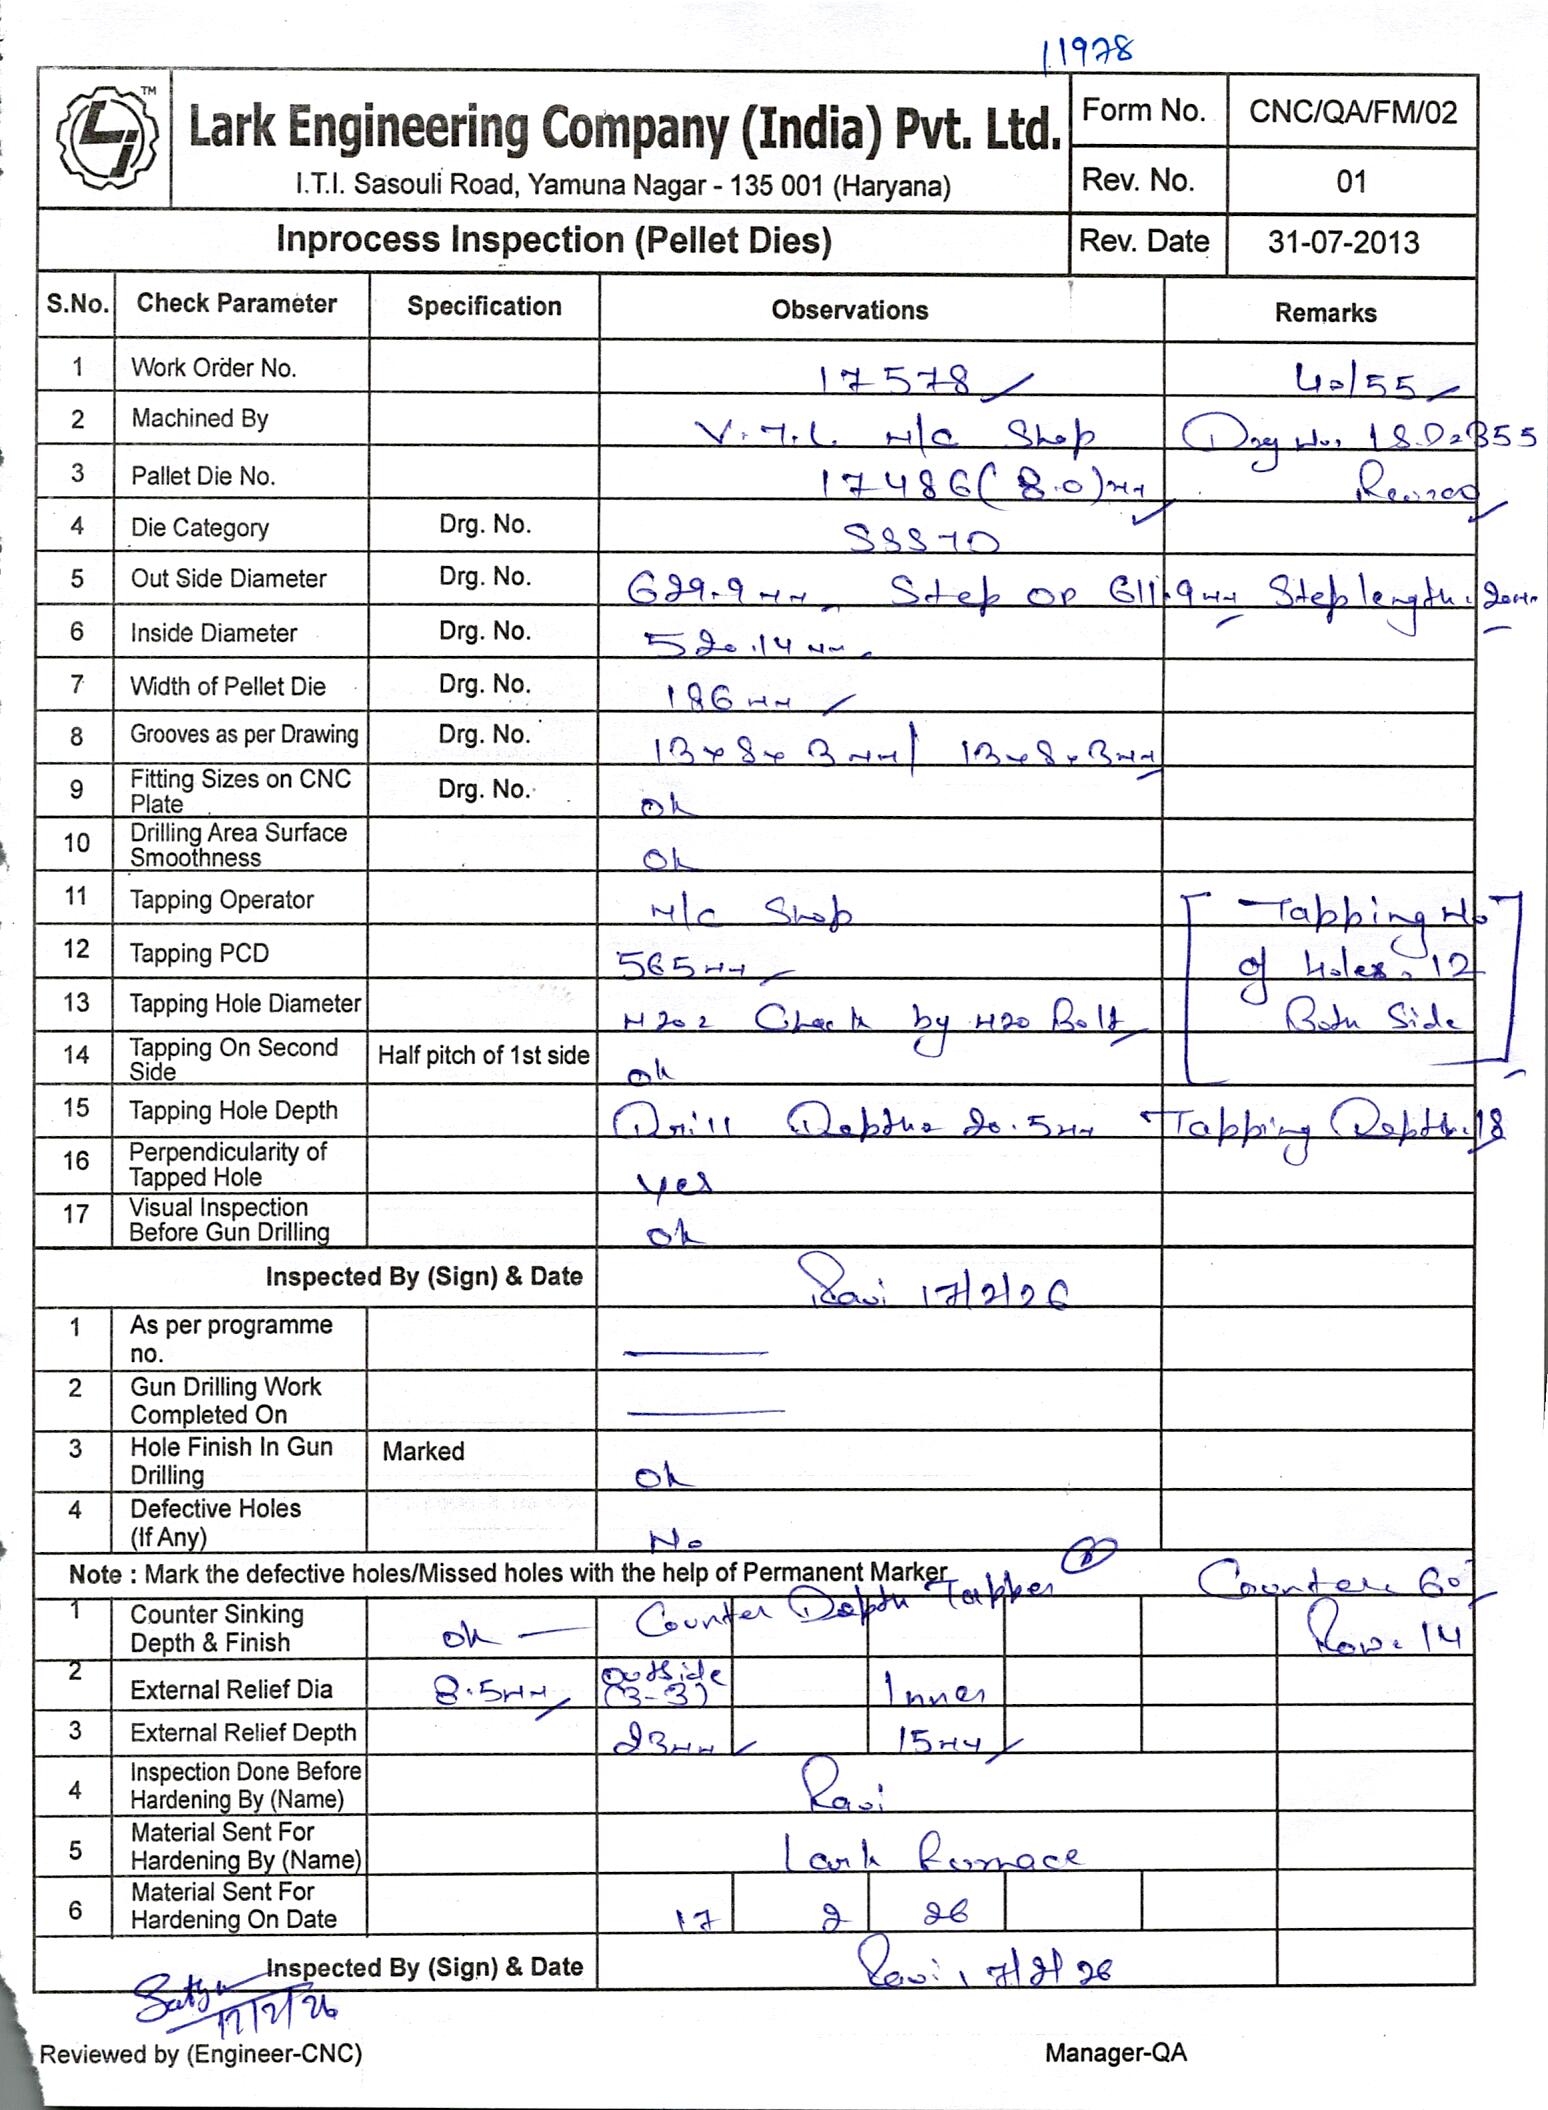 11978
TM
Lark Engineering Company (India) Pvt. Ltd.
I.T.I. Sasouli Road, Yamuna Nagar - 135 001 (Haryana)
Form No. CNC/QA/FM/02
Rev. No. 01
Inprocess Inspection (Pellet Dies) Rev. Date 31-07-2013
S.No. Check Parameter Specification Observations Remarks
1 Work Order No. 17578 40/55
2 Machined By V.T.L M/C Shop Drg No.
3 Pallet Die No. 17486 (8.0)mm
4 Die Category Drg. No.
5 Out Side Diameter Drg. No. 629.9mm Step OD 611.9mm Step length: 20mm
6 Inside Diameter Drg. No. 520.14mm
7 Width of Pellet Die Drg. No. 186mm
8 Grooves as per Drawing Drg. No. 13x8x3mm/ 13x8x3mm
9 Fitting Sizes on CNC Plate Drg. No. ok
10 Drilling Area Surface Smoothness ok
11 Tapping Operator M/C Shop Tapping No
12 Tapping PCD 565mm of Holes. 12
13 Tapping Hole Diameter M20: Check by M20 Bolt Both Side
14 Tapping On Second Side Half pitch of 1st side ok
15 Tapping Hole Depth Drill Depth: 20.5mm Tapping Depth. 18
16 Perpendicularity of Tapped Hole yes
17 Visual Inspection Before Gun Drilling ok
Inspected By (Sign) & Date Ravi 17/2/26
1 As per programme no.
2 Gun Drilling Work Completed On
3 Hole Finish In Gun Drilling Marked ok
4 Defective Holes (If Any) No
Note : Mark the defective holes/Missed holes with the help of Permanent Marker Counter 60°
1 Counter Sinking Depth & Finish ok Counter Depth Tapper Row. 14
2 External Relief Dia 8.5mm outside (3-3) Inner
3 External Relief Depth 23mm 15mm
4 Inspection Done Before Hardening By (Name) Ravi
5 Material Sent For Hardening By (Name) Lark Furnace
6 Material Sent For Hardening On Date 17 2 26
Inspected By (Sign) & Date Ravi 17/2/26
Satya
17/2/26
Reviewed by (Engineer-CNC) Manager-QA